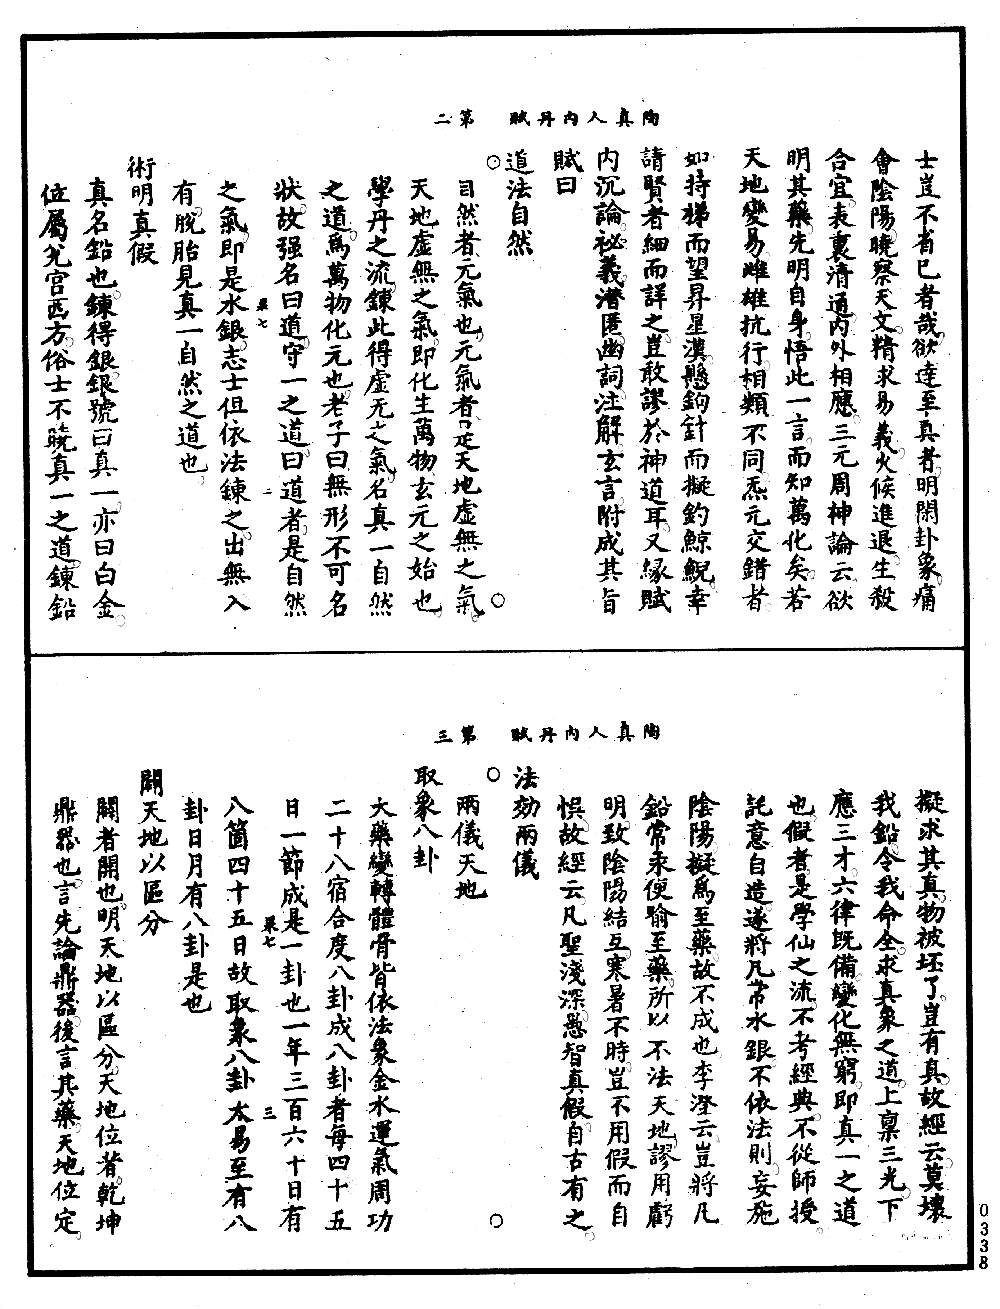 陶真人內丹賦　第二
士豈不省已者哉欲達至真者明閑卦象痛
會陰陽曉察天文精求易義火候進退生殺
合宜表裏清通內外相應三元周神論云欲
明其藥先明自身悟此一言而知萬化矣若
天地變易雌雄抗行相類不同炁元交錯者
如持梯而望昇星漢懸鈎針而擬釣鯨鯢幸
請賢者細而詳之豈敢謬於神道耳又緣賦
內沉論秘義潛匿幽詞注解玄言附成其旨
賦曰
道法自然
自然者元氣也元氣者是天地虛無之氣
天地虛無之氣即化生萬物玄元之始也
學丹之流鍊此得虛无之氣名真一自然
之道為萬物化元也老子曰無形不可名
狀故强名曰道守一之道曰道者是自然
之氣即是水銀志士但依法鍊之出無入
有脫胎見真一自然之道也
術明真假
真名鉛也鍊得銀銀號曰真一亦曰白金
位屬兌宮西方俗士不曉真一之道鍊鉛
果七
二
陶真人內丹賦　第三
擬求其真物被坯了豈有真故經云莫壞
我鉛令我命全求真象之道上稟三光下
應三才六律既備變化無窮即真一之道
也假者是學仙之流不考經典不從師授
託意自造遂將凡常水銀不依法則妄施
陰陽擬為至藥故不成也李澄云豈將凡
鉛常汞便喻至藥所以不法天地謬用虧
明致陰陽結互寒暑不時豈不用假而自
悞故經云凡聖淺深愚智真假自古有之
法効兩儀
兩儀天地
取象八卦
大藥變轉體骨皆依法象金水運氣周功
二十八宿合度八卦成八卦者每四十五
日一節成是一卦也一年三百六十日有
八箇四十五日故取象八卦太易至有八
卦日月有八卦是也
闢天地以區分
闢者開也明天地以區分天地位者乾坤
鼎器也言先論鼎器後言其藥天地位定
果七
三
0338